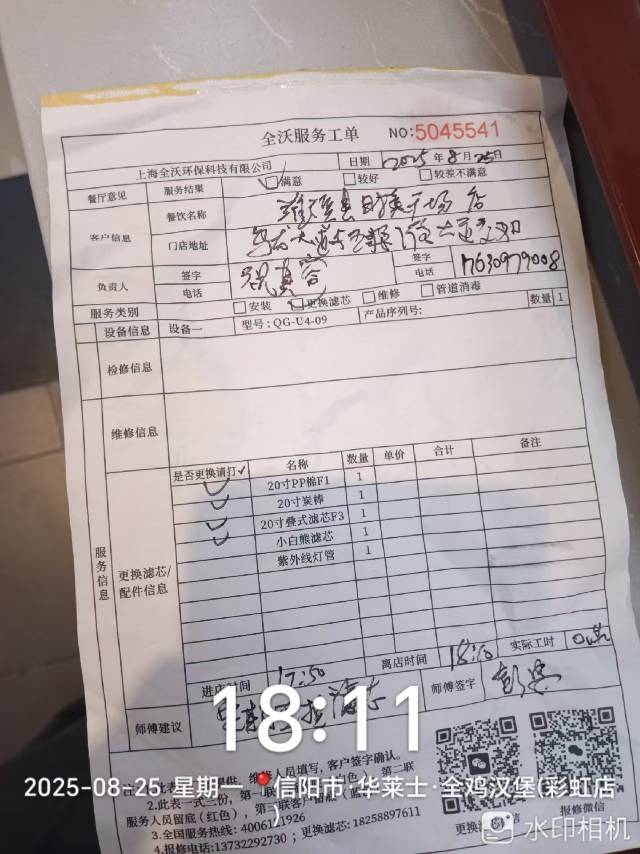 全沃服务工单 NO:5045541
上海全沃环保科技有限公司 日期 2025年8月25日
餐厅意见 服务结果 满意 较好 较差不满意
客户信息 餐饮名称 店
门店地址
负责人 签字 签字
电话 电话 17630979008
服务类别 安装 更换滤芯 维修 管道消毒
设备信息 设备一 型号:QG-U4-09 产品序列号: 数量 1
检修信息
维修信息
服务信息
更换滤芯/配件信息
是否更换请打✓ 名称 数量 单价 合计 备注
✓ 20寸PP棉F1 1
✓ 20寸炭棒 1
✓ 20寸叠式滤芯F3 1
✓ 小白熊滤芯 1
紫外线灯管 1
进店时间 17:50 离店时间 18:10 实际工时
师傅建议 滤芯 师傅签字
18:11
2025-08-25 星期一 信阳市·华莱士·全鸡汉堡(彩虹店)
维修人员填写,客户签字确认。
2.此表一式三份,
服务人员留底(红色),
3.全国服务热线:
4.报修电话:13732292730 ; 更换滤芯:18258897611
更换滤芯微信
报修微信
水印相机